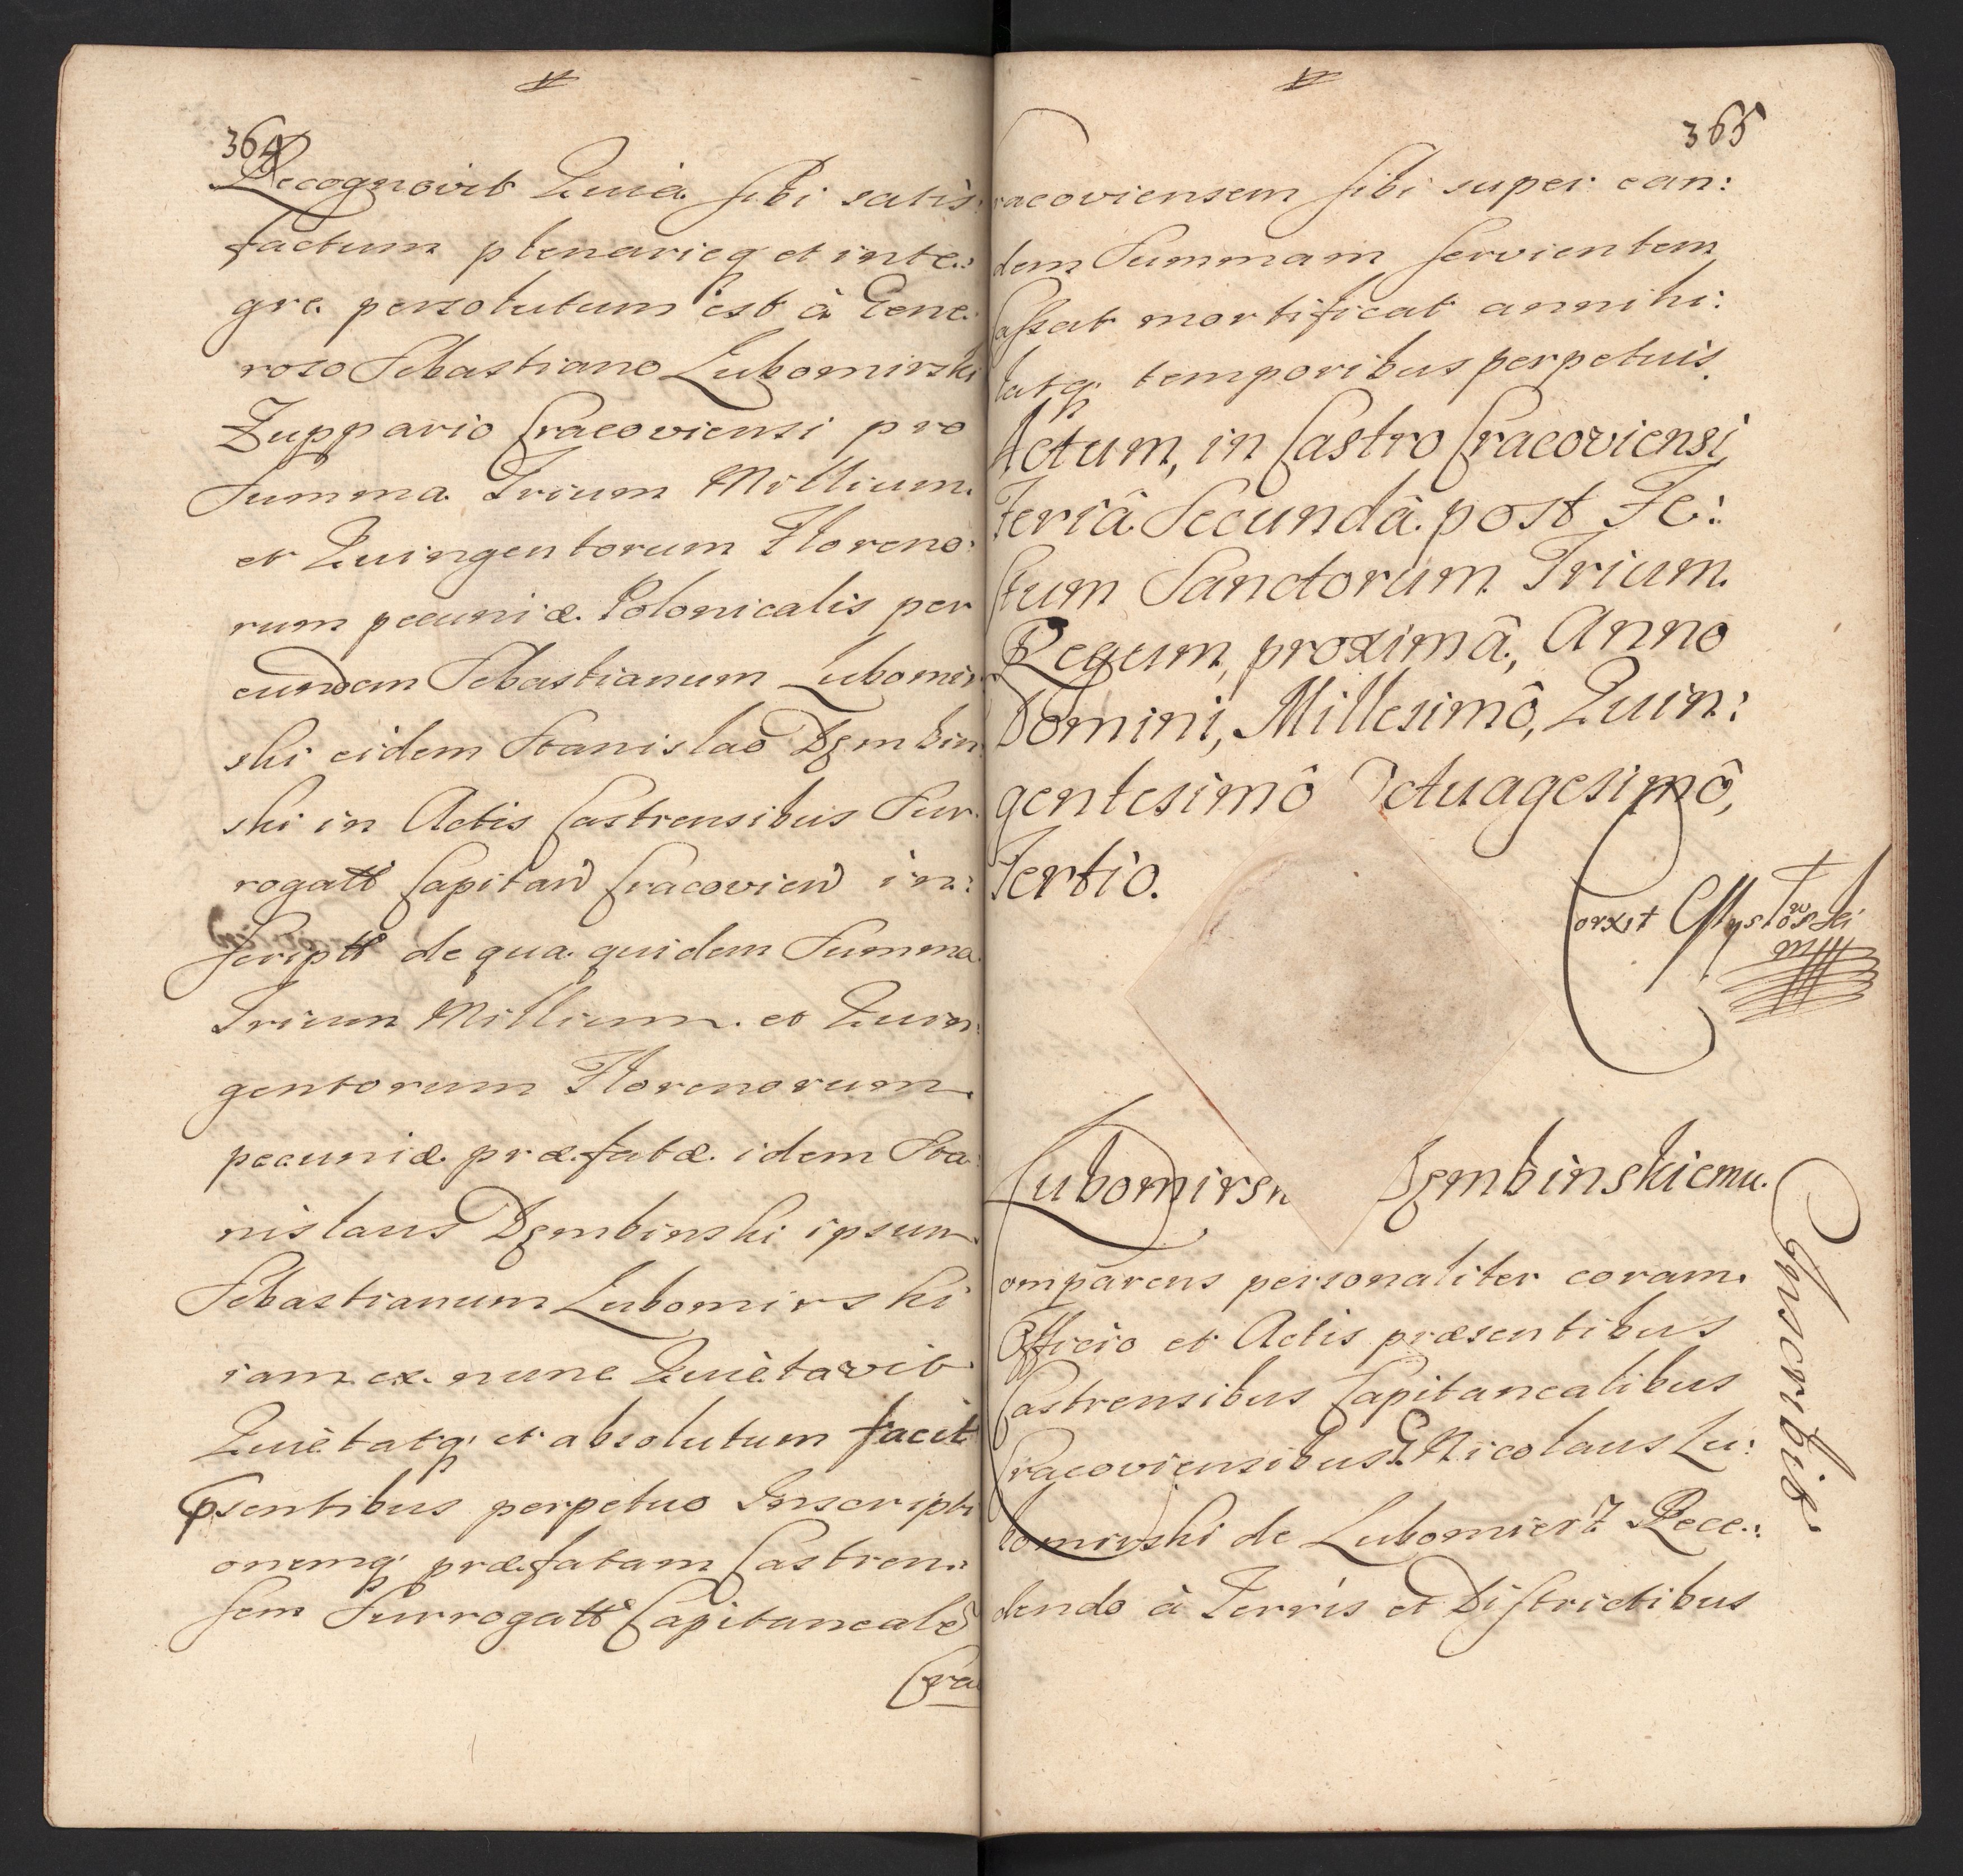 364
Recognovit Quia sibi satis:
factum plenarieq et inte:
gre persolutum est à Gene:
roso Sebastiano Lubomirski
Zuppario Cracoviensi pro
Summa Trium Millium
et Quingentorum Floreno:
rum pecuniæ Polonicalis per
eundem Sebastianum Lubomir
ski eidem Stanislao Dęmbin
ski in Actis Castrensibus Sur
rogatt Capitan Cracovien in:
scriptt de qua quidem Summa
Trium Millium et Quin
gentorum Florenorum
pecuniæ præfatæ idem Sta
nislaus Dęmbinski ipsum
Sebastianum Lubomirski
iam ex nunc Quietavit
Quietatq et absolutum facit
psentibus perpetuo Inscripti
onemq præfatam Castren:
sem Surrogatt Capitaneale
Cra
365
racoviensem sibi super ean:
dem Summam servientem
Cassat mortificat annihi:
latq temporibus perpetuis.
Actum, in Castro Cracoviensi
Feriâ Secundâ post Fe:
stum Sanctorum Trium
Regum, proximâ, Anno
Domini, Millesimô, Quin:
gentesimô Octuagesimô,
Tertio.
Corxit
Lubomirsk Dęmbinskiemu
Inscribit
Comparens personaliter coram
Officio et Actis præsentibus
Castrensibus Capitanealibus
Cracoviensibus G Nicolaus Lu:
bomirski de Lubomierz Rece:
dendo à Terris et Districtibus